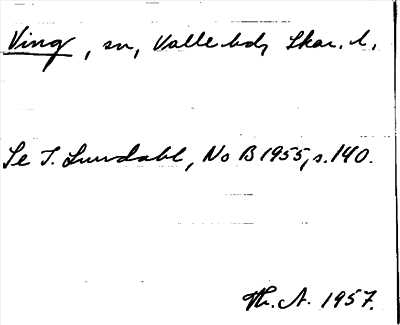 Ving, sn, Valle hd, Skar. l.
Se I. Lundahl, NoB 1955, s. 140.
Th. A. 1957.